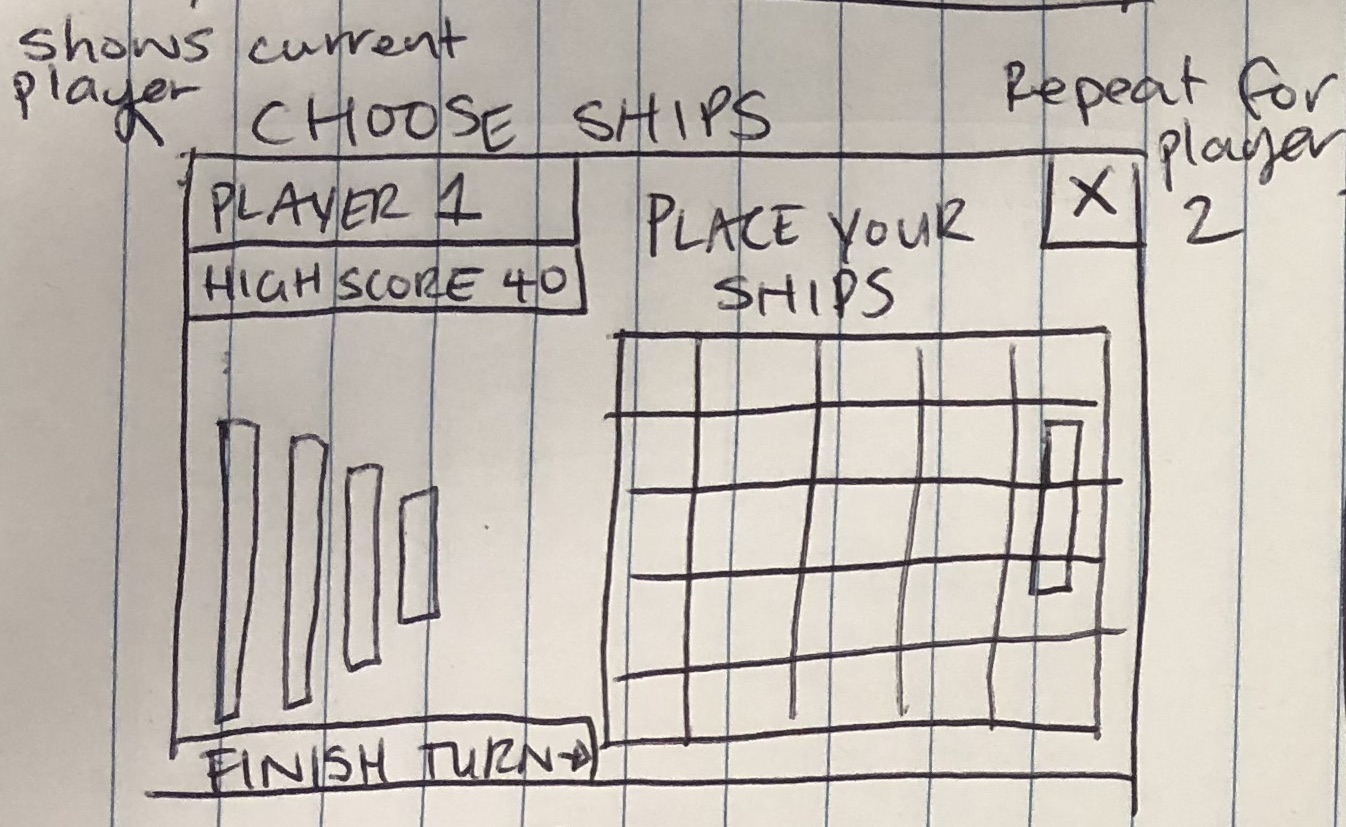 shows current
player
CHOOSE SHIPS
Repeat for
player
2
PLAYER 1
HIGH SCORE 40
PLACE YOUR
SHIPS
X
FINISH TURN→